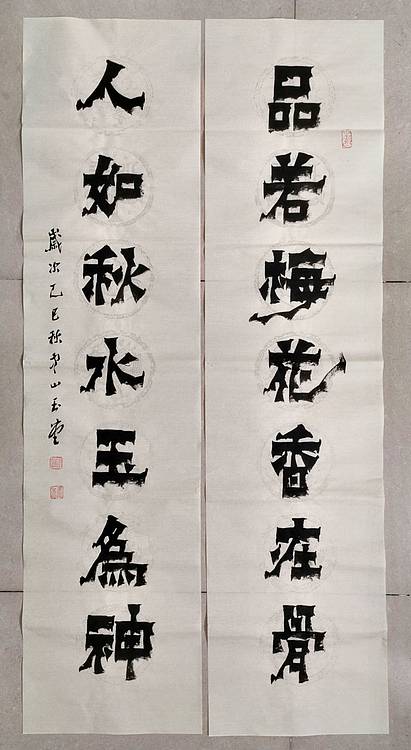 品若梅花香在骨
人如秋水玉為神
歲次乙巳秋
山玉堂